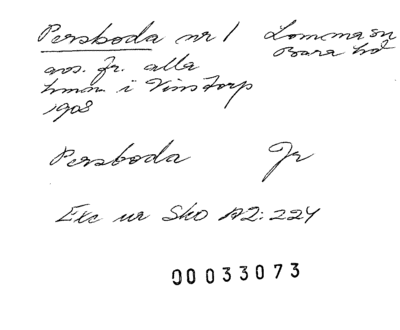 Persboda nr 1 Lomma sn
Bara hd
avs. fr. alla
hmn i Vinstorp
1908
Persboda Jr
Exc ur Sko A2:224
00033073